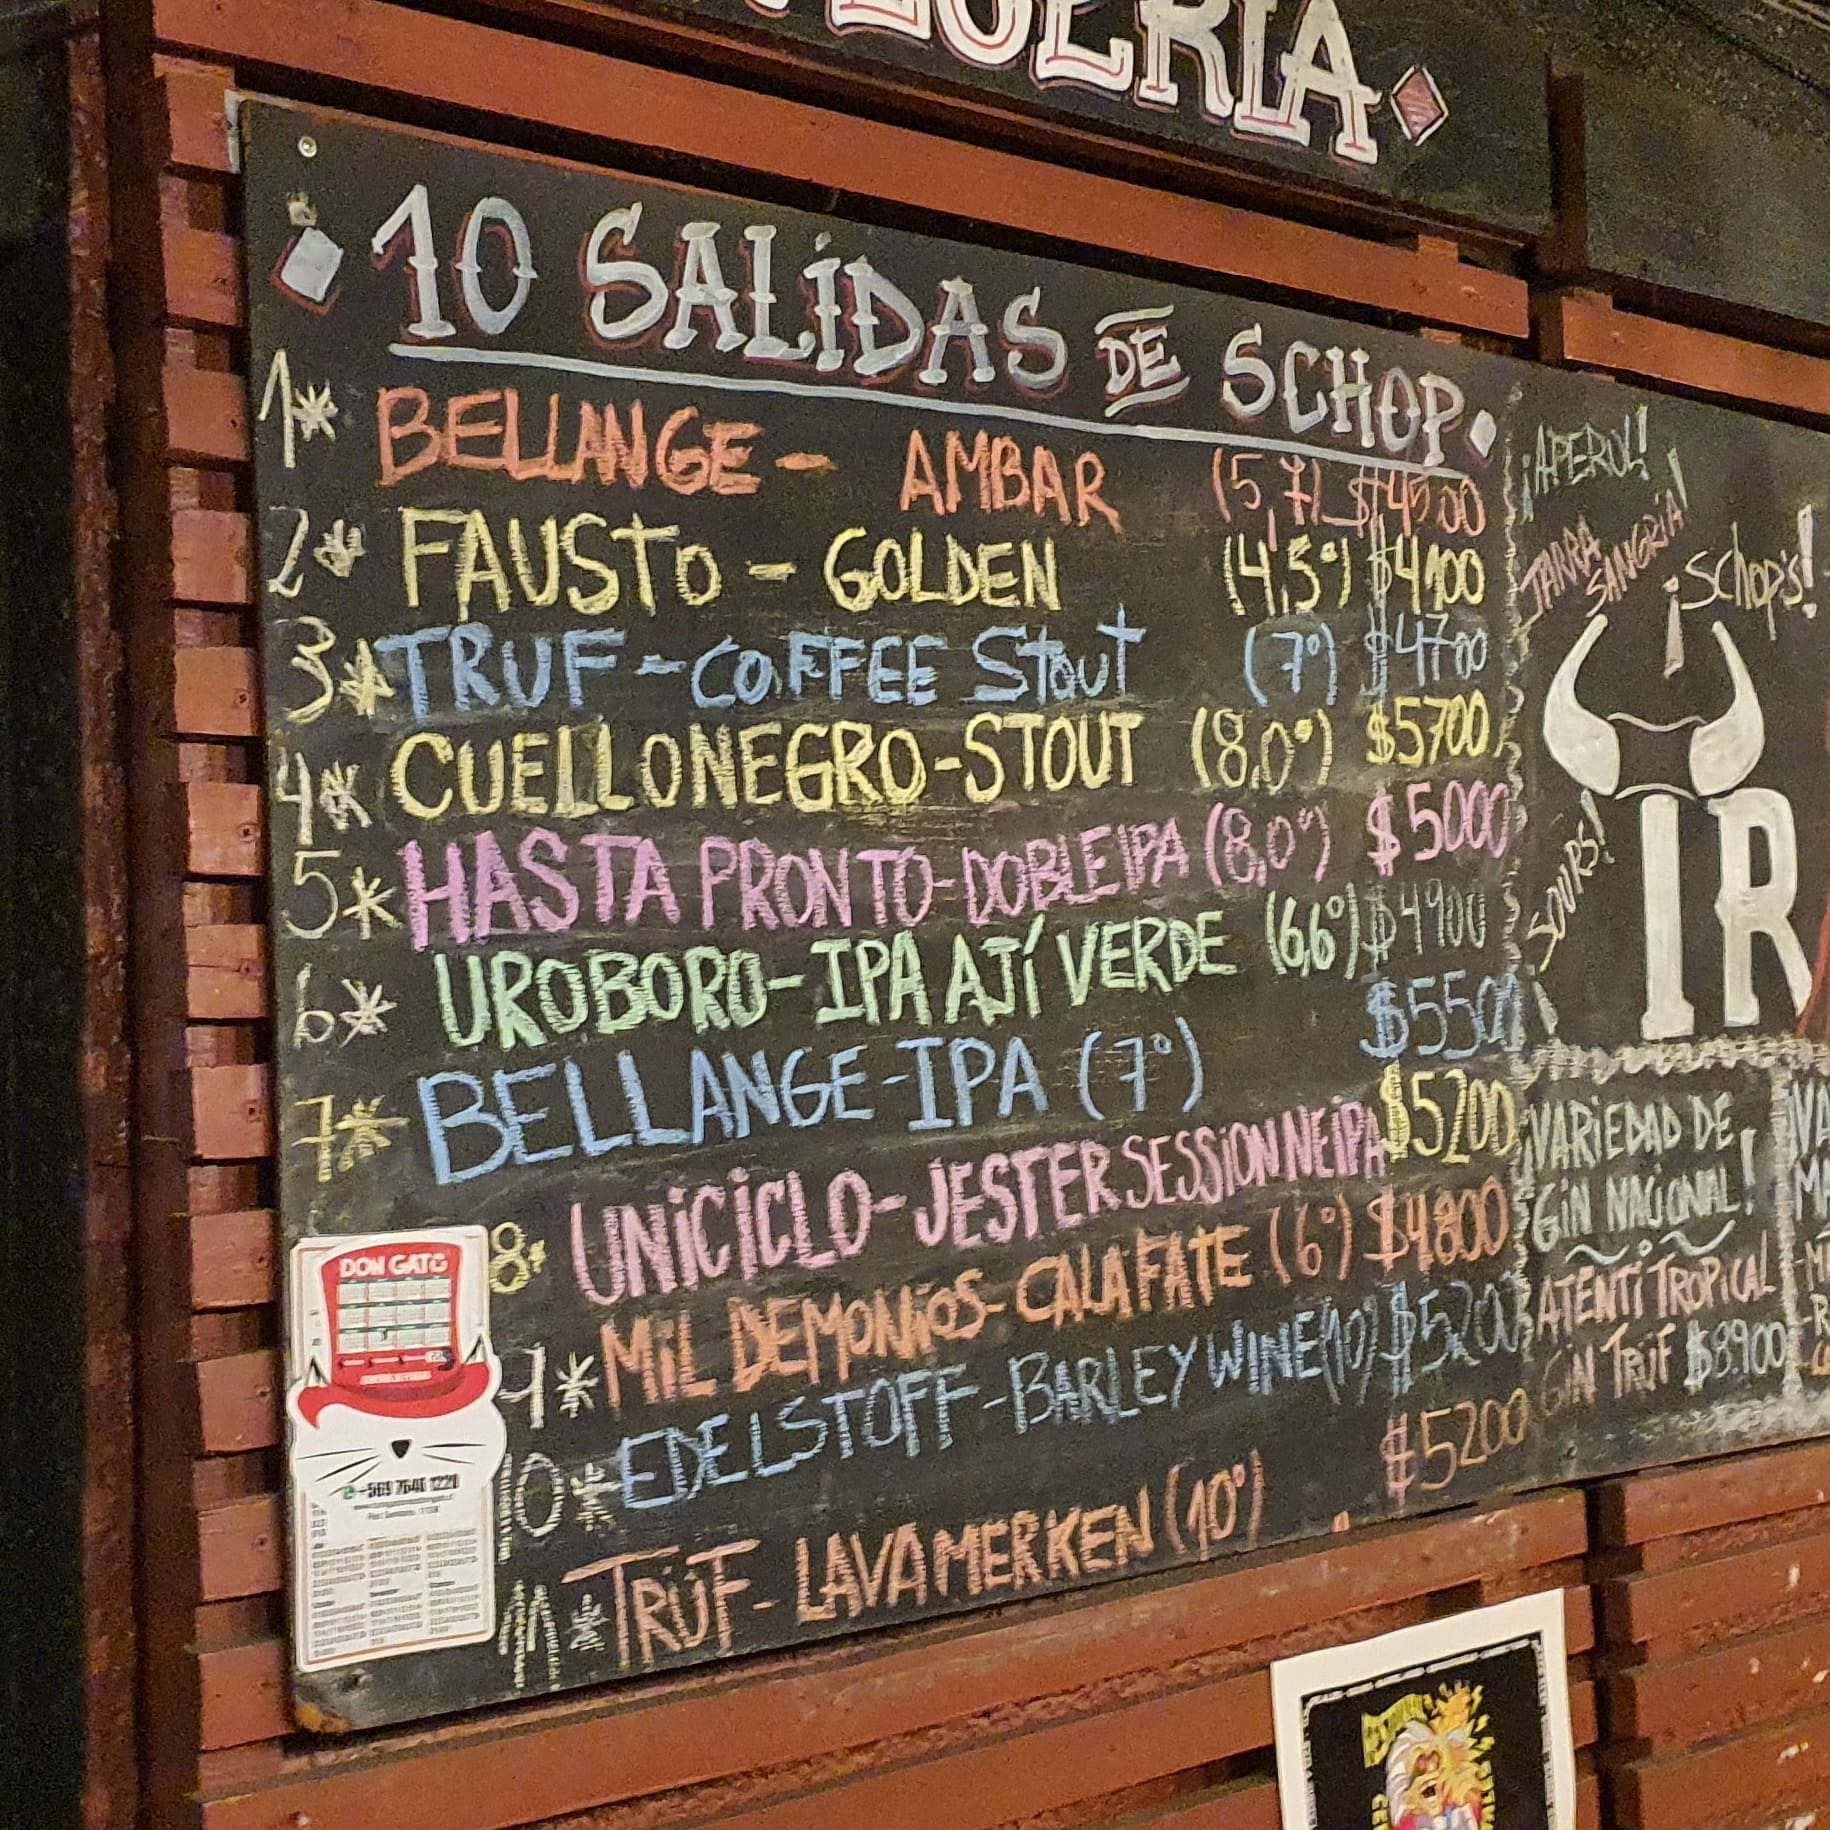 10 SALIDAS DE SCHOP
1* BELLANGE - AMBAR (5,7) $4500
2* FAUSTO - GOLDEN (4,5°) $4100
3* TRUF - COFFEE Stout (7°) $4700
4* CUELLONEGRO - STOUT (8,0°) $5700
5* HASTA PRONTO - DOBLE IPA (8,0°) $5000
6* UROBORO - IPA AJÍ VERDE (6,6°) $4900
7* BELLANGE - IPA (7°) $5500
8* UNICICLO - JESTER SESSION NEIPA $5200
9* MIL DEMONIOS - CALAFATE (6°) $4800
10* EDELSTOFF - BARLEY WINE (10) $5200
11* TRÜF - LAVAMERKEN (10°) $5200
¡APEROL!
JARRA
SANGRIA!
¡Schop's!
SOURS!
IR
¡VARIEDAD DE
GIN NACIONAL!
ATENTI TROPICAL
GIN TRÜF $8.900
DON GATO
+569 7640 1221